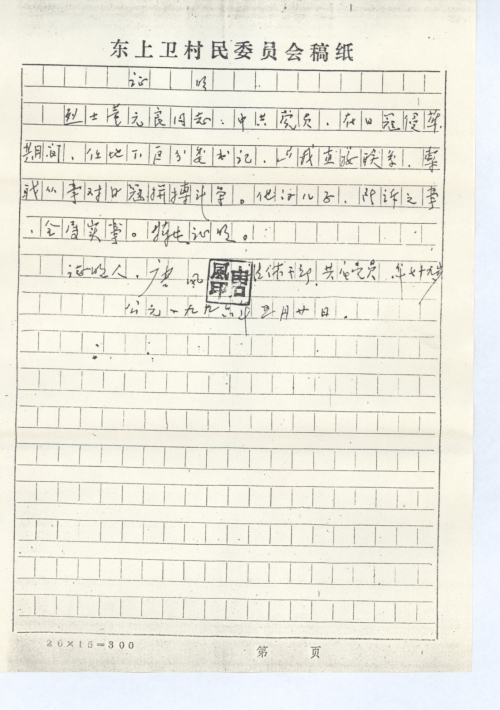 东上卫村民委员会稿纸
证 明
烈士董元良同志：中共党员，在日冠侵华
期间，任地下区分委书记，与我直接联系，
我从事对日冠拼搏斗争。他的儿子，所诉之事
，全属实事。特此证明。
证明人，唐风 休干部，共产党员
公元一九九六年三月廿日。
26×15=300
第 页